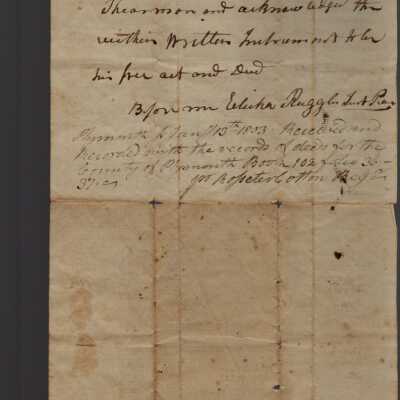 Shearman and acknowledged the
within Written Instrument to be
his free act and Deed
Before me Elisha Ruggles Just Peace
Plymouth ss Jany 13th 1803. Received and
Recorded with the records of deeds for the
County of Plymouth Book 102 folio 36-
37 &c
pr Rosseter Cotton Regr